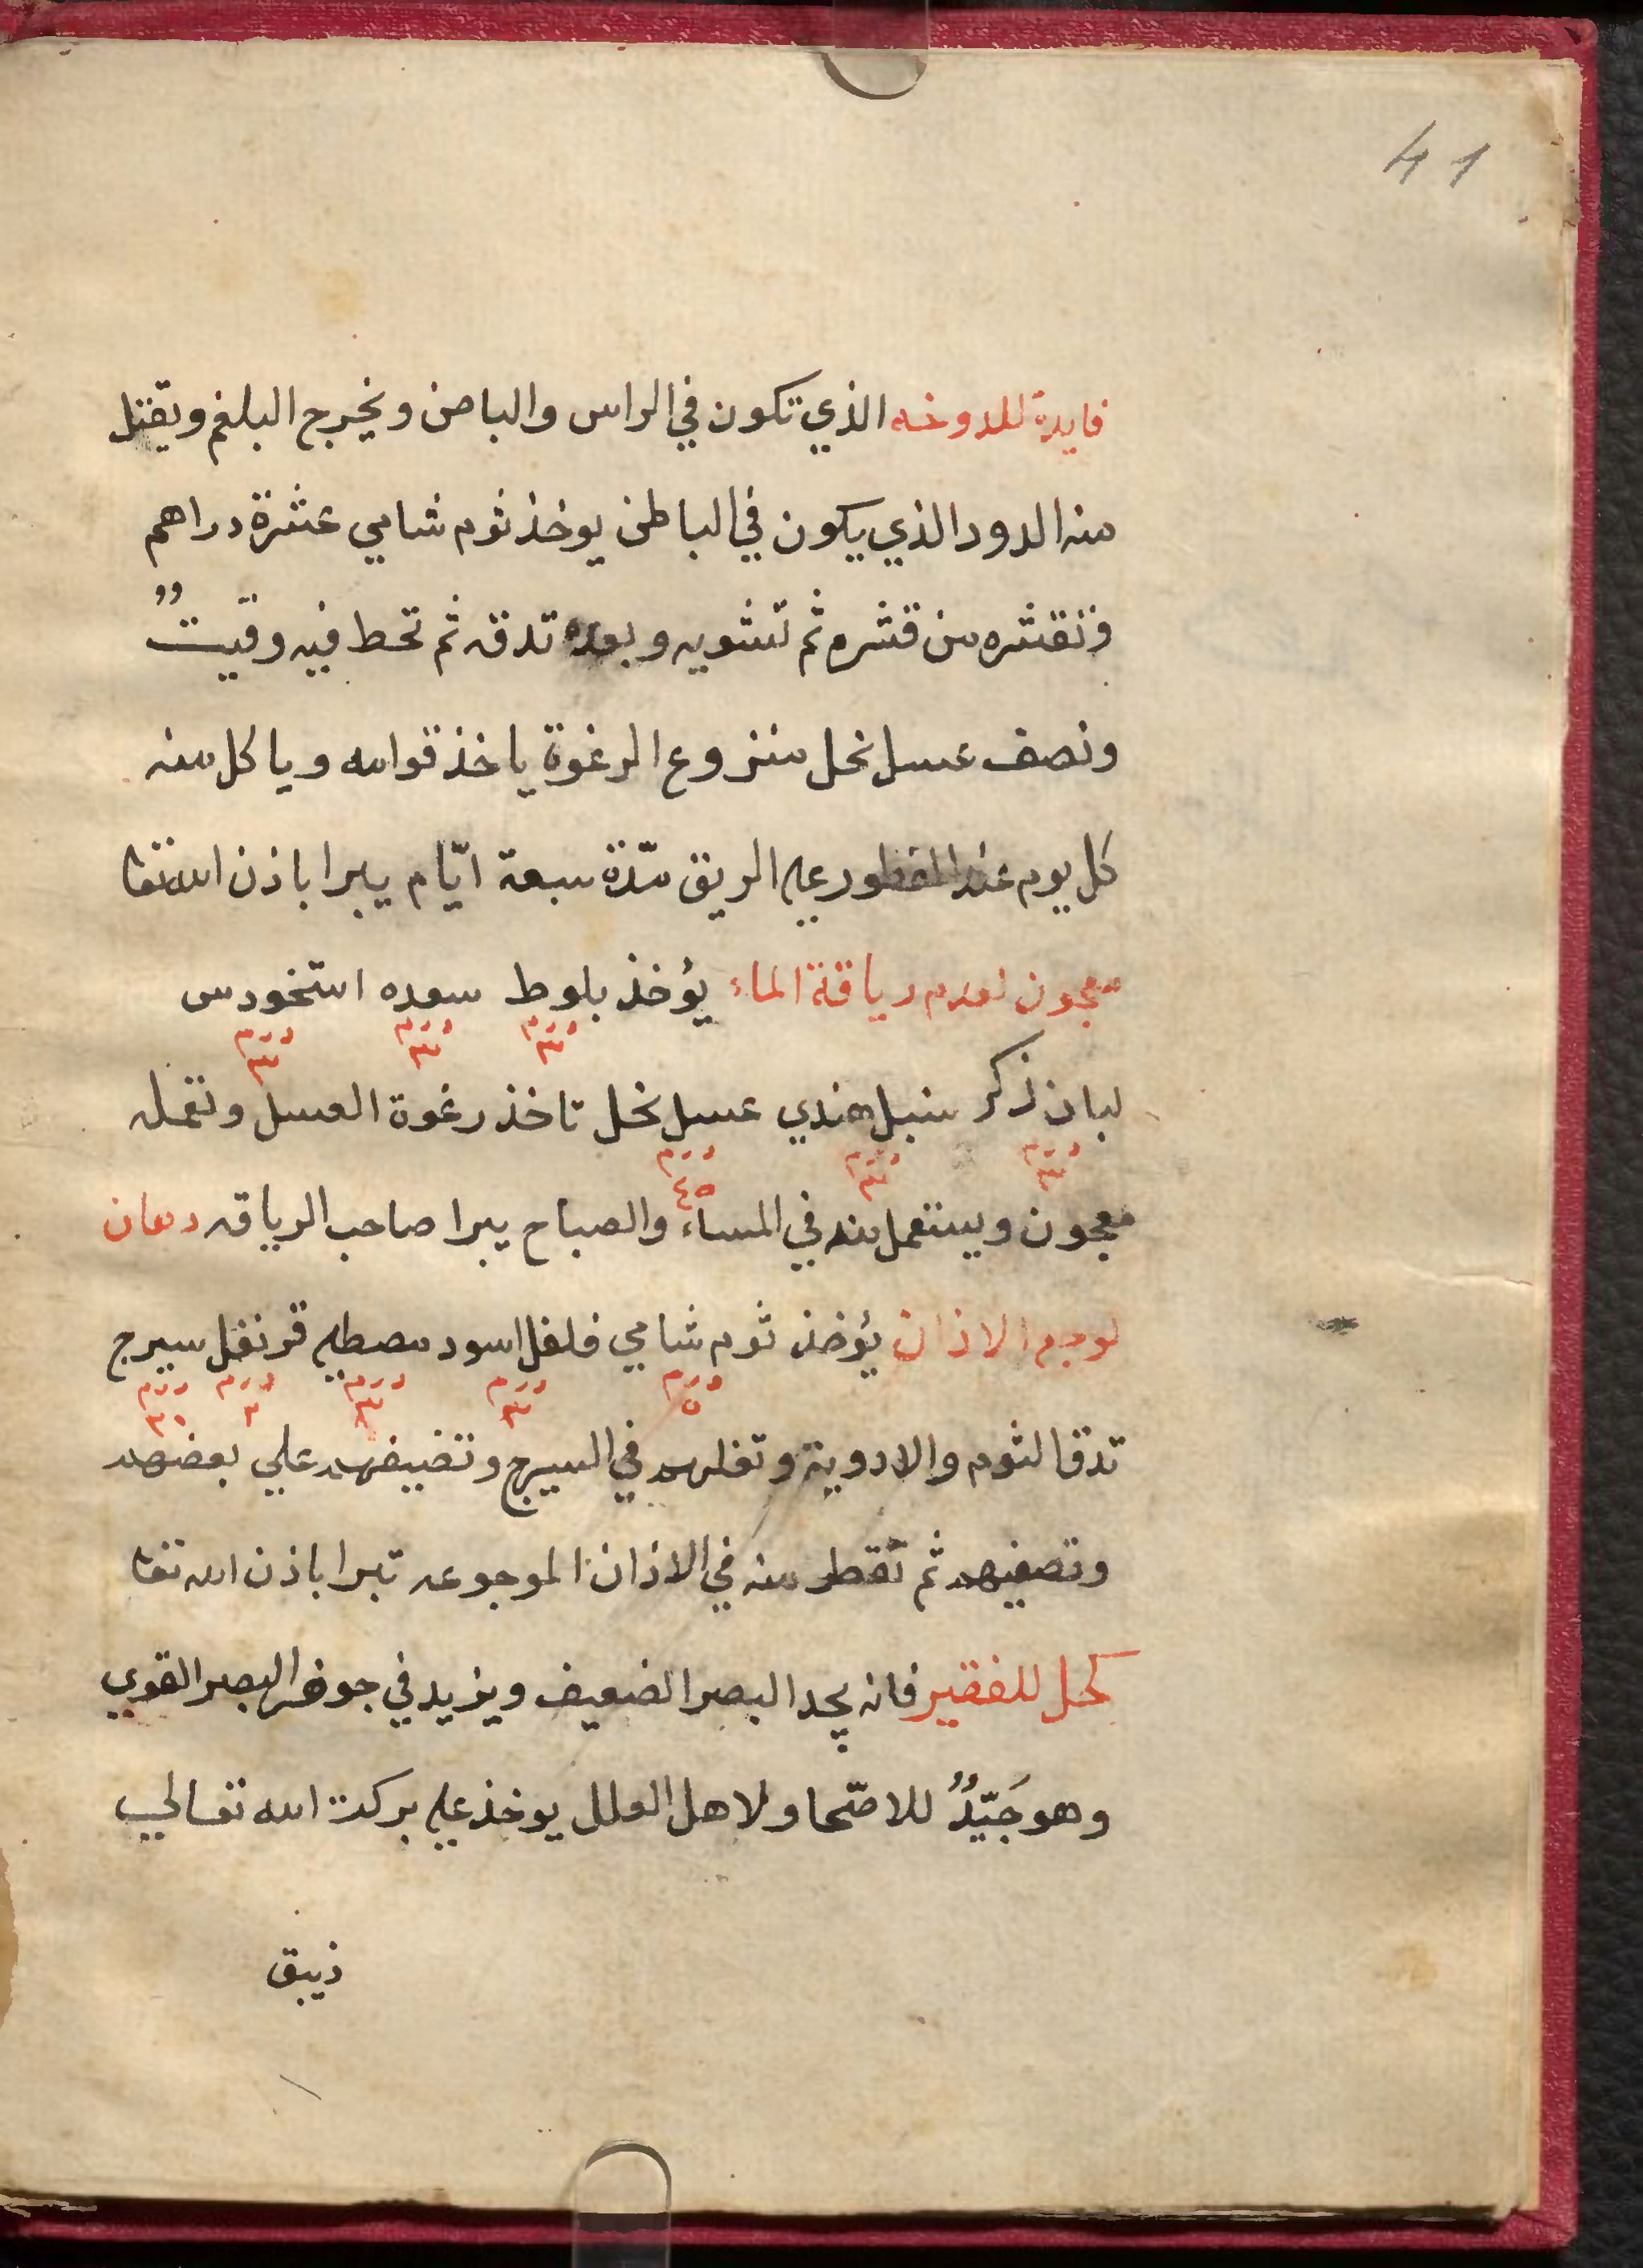 41
فايدة للدوخه الذي تكون في الراس والباصن ويخرج البلغم ويقتل
منه الدود الذي يكون في الباطن يوخذ ثوم شامي عشرة دراهم
وتقشره من قشره ثم تشويه وبعده تدقه ثم تحط فيه وقيتٌ
ونصف عسل نحل منزوع الرغوة ياخذ قوامه وياكل منه
كل يوم عند الفطور علي الريق مدّة سبعة ايّام يبرا باذن الله تعا
معجون لعدم رياقة الماء يؤخذ بلوط سعده استخودس
درم ٣ درم ٣ درم ٣
لبان ذكر سنبل هندي عسل نحل تاخذ رغوة العسل وتعمله
درم ٣ درم ٣ درم ٤٥
معجون ويستعمل منه في المساء والصباح يبرا صاحب الرياقه دهان
لوجع الاذان يؤخذ ثوم شامي فلفل اسود مصطلي قرنفل سيرج
درم ٥ درم ٣ درم ٣ درم ٣ درم ٣٠
تدق الثوم والادوية وتغليهم في السيرج وتضيفهم علي بعضهم
وتصفيهم ثم تقطر منه في الاذان الموجوعه تبرا باذن الله تعا
كحل للفقير فانه يحد البصر الضعيف ويزيد في جوهر البصر القوي
وهو جَيّدٌ للاصّحا ولاهل العلل يوخذ علي بركت الله تعالي
ذيبق